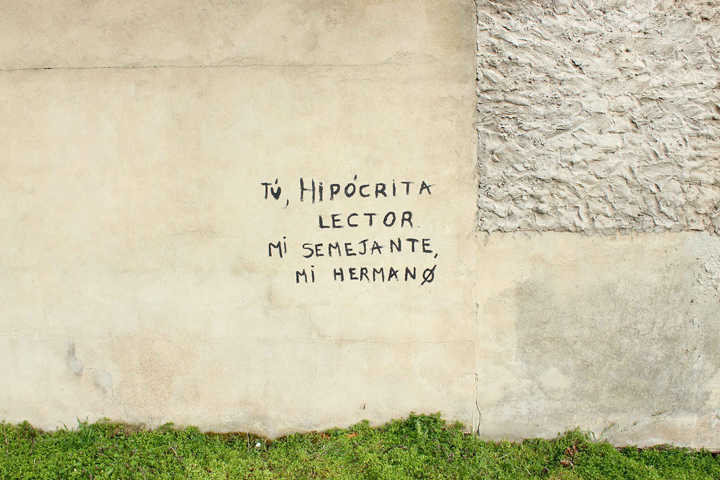 TÚ, HIPÓCRITA
LECTOR
MI SEMEJANTE,
MI HERMANØ